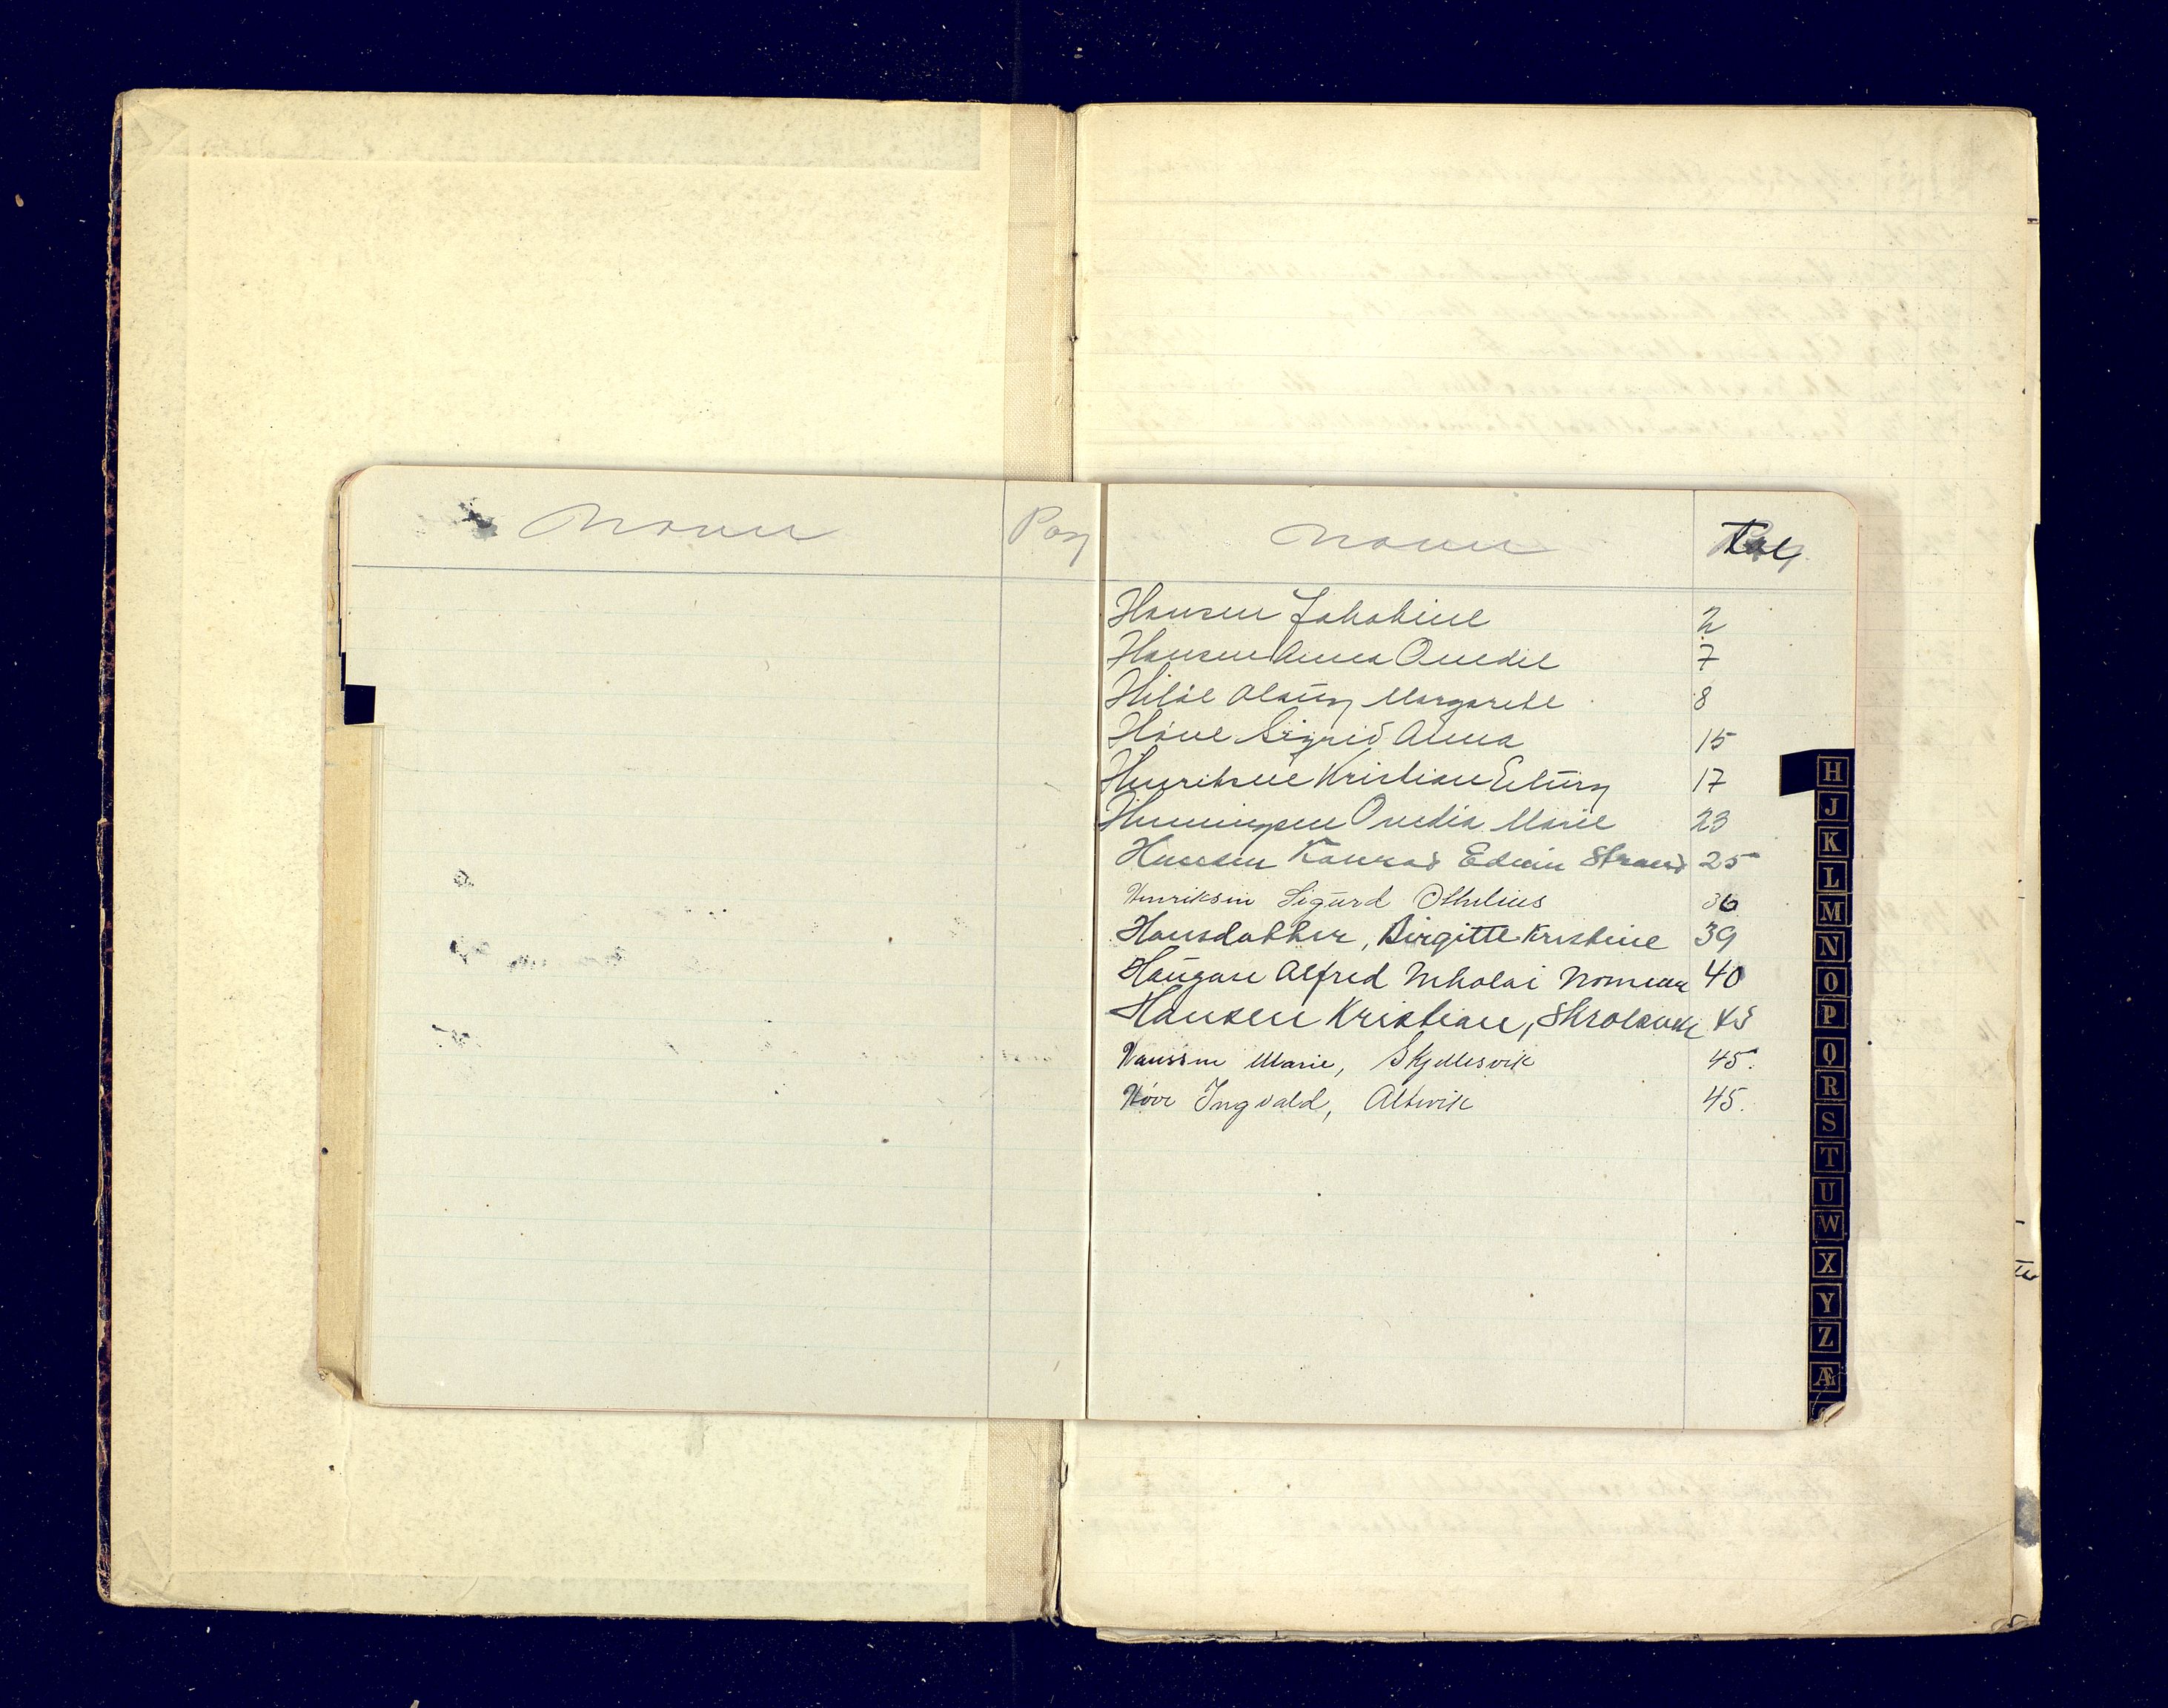 Navn Pag
Navn
Hansen Jakobine 2
Hansen Anna Ovedie 7
Hilde Olaug Margarete 8
Höve Sigrid Anna 15
Henriksen Kristian 17
Henningsen Ovedia Marie 23
Hansen Konrad Edvin Strand 25
Henriksen Sigurd Othelius 36
Hansdatter, Birgitte Kristine 39
Haugan Alfred Nikolai 40
Hansen Kristian, Skrolsvik 45
Hanssen Marie, Skjellesvik 45.
Höve Ingvald, Altevik 45.
H
J
K
L
M
N
O
P
Q
R
S
T
U
W
X
Y
Z
Æ